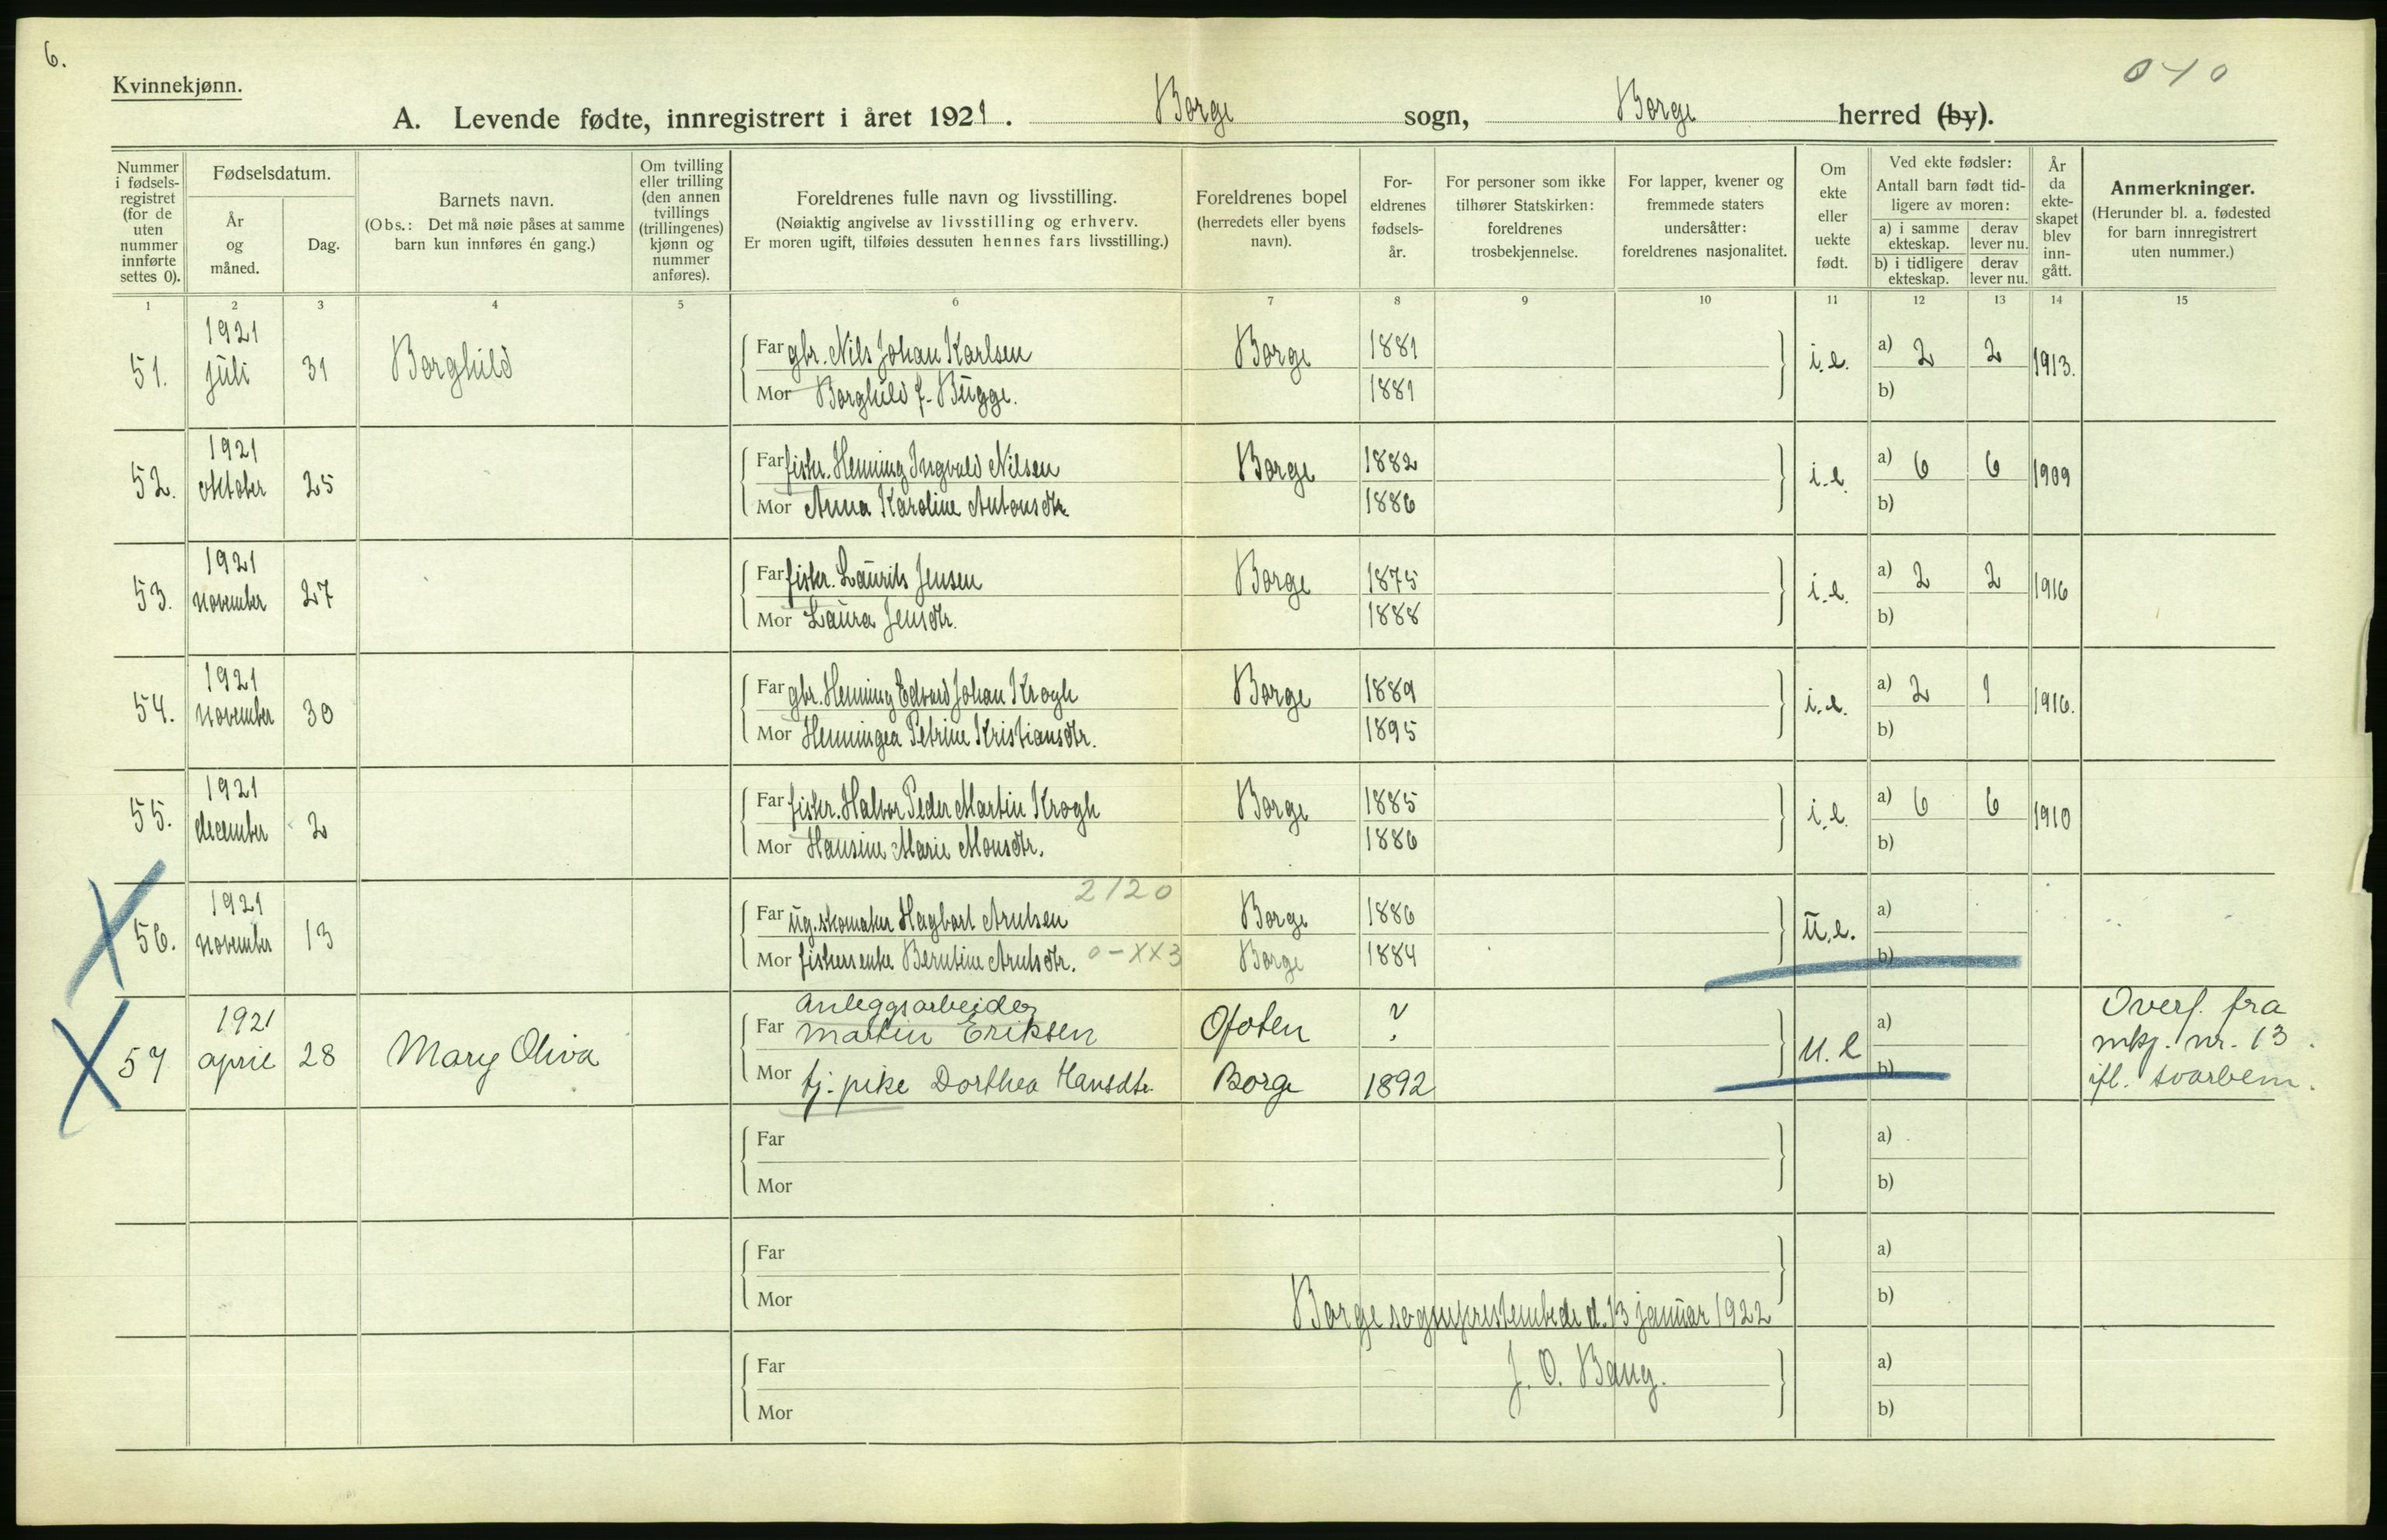 6.
Kvinnekjønn.
040
A. Levende fødte, innregistrert i året 1921. Borge sogn, Borge herred (by).
Nummer i fødsels-registret (for de uten nummer innførte settes 0).
Fødselsdatum.
År og måned.
Dag.
Barnets navn.
(Obs.: Det må nøie påses at samme barn kun innføres én gang.)
Om tvilling eller trilling (den annen tvillings (trillingenes) kjønn og nummer anføres).
Foreldrenes fulle navn og livsstilling.
(Nøiaktig angivelse av livsstilling og erhverv.
Er moren ugift, tilføies dessuten hennes fars livsstilling.)
Foreldrenes bopel
(herredets eller byens navn).
For-eldrenes fødsels-år.
For personer som ikke tilhører Statskirken: foreldrenes trosbekjennelse.
For lapper, kvener og fremmede staters undersåtter: foreldrenes nasjonalitet.
Om ekte eller uekte født.
Ved ekte fødsler:
Antall barn født tid-ligere av moren:
a) i samme ekteskap. derav lever nu.
b) i tidligere ekteskap. derav lever nu.
År da ekte-skapet blev inn-gått.
Anmerkninger.
(Herunder bl. a. fødested for barn innregistrert uten nummer.)
1 2 3 4 5 6 7 8 9 10 11 12 13 14 15
51. 1921 juli 31 Borghild
Far gbr. Nils Johan Karlsen Borge 1881 i.e. a) 2 2 1913.
Mor Borghild f. Bugge. 1881 b)
52. 1921 oktober 25
Far fisker. Henning Ingvald Nilsen Borge 1882 i.e. a) 6 6 1909
Mor Anna Karoline Antonsdtr. 1886 b)
53. 1921 november 27
Far fisker. Laurits Jensen Borge 1875 i.e. a) 2 2 1916
Mor Laura Jensdtr. 1888 b)
54. 1921 november 30
Far gbr. Henning Edvard Johan Krogh Borge 1889 i.e. a) 2 1 1916.
Mor Henningea Petrine Kristiansdtr. 1895 b)
55. 1921 december 2
Far fisker. Halvor Peder Martin Krogh Borge 1885 i.e. a) 6 6 1910
Mor Hansine Marie Monsdtr. 1886 b)
2120
56. 1921 november 13
Far ug. skomaker Hagbart Arntsen Borge 1886 u.e. a)
Mor fiskerenke Berntine Arntsdtr. 0-XX3 Borge 1884 b)
57 1921 april 28 Mary Oliva
Anleggsarbeider
Far Martin Eriksen Ofoten ? u.e a)
Mor tj. pike Dorthea Hansdtr. Borge 1892 b)
Overf. fra
mkj. nr. 13.
ifl. svarbem.
Far a)
Mor b)
Far a)
Mor b)
Borge sogneprestembede d. 13 januar 1922
Far a)
J. O. Bang.
Mor b)